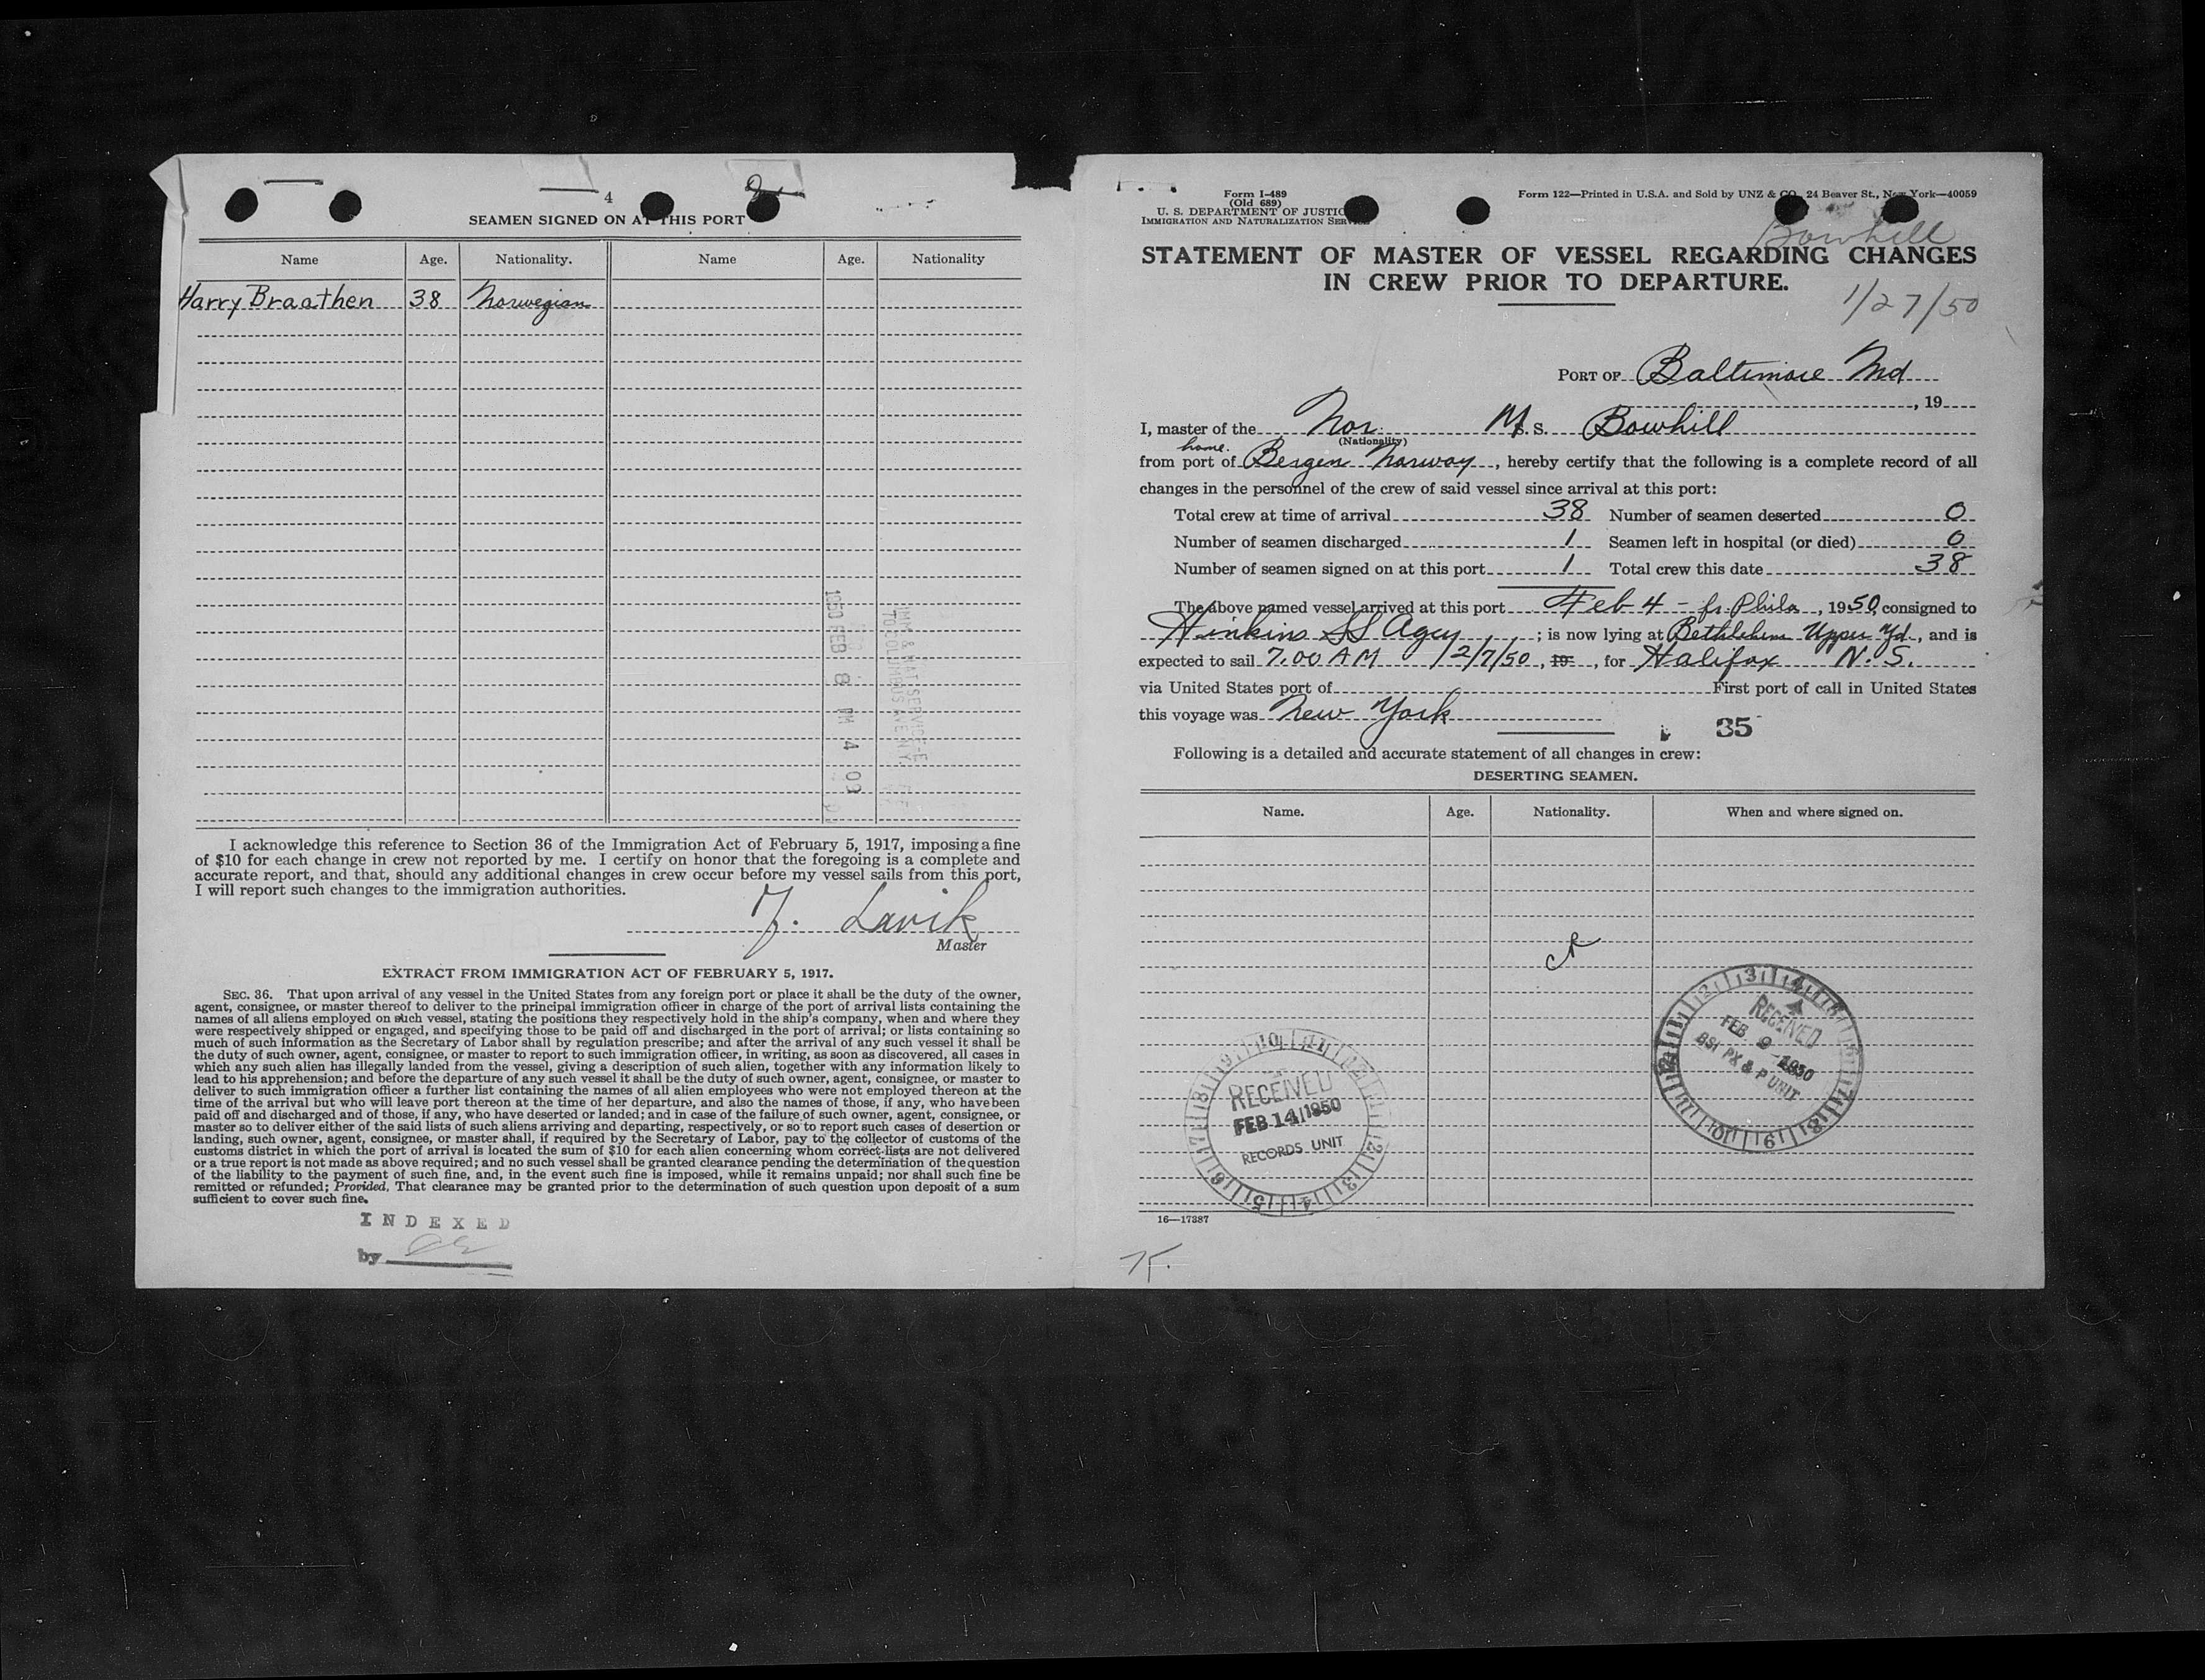 4
SEAMEN SIGNED ON AT THIS PORT
Name Age. Nationality. Name Age. Nationality
Harry Braathen 38 Norwegian
1950 FEB 8 PM 4 09
IMM & NAT SERVICE
70 COLUMBUS AVE N.Y.
I acknowledge this reference to Section 36 of the Immigration Act of February 5, 1917, imposing a fine
of $10 for each change in crew not reported by me. I certify on honor that the foregoing is a complete and
accurate report, and that, should any additional changes in crew occur before my vessel sails from this port,
I will report such changes to the immigration authorities.
Lavik
Master
EXTRACT FROM IMMIGRATION ACT OF FEBRUARY 5, 1917.
SEC. 36. That upon arrival of any vessel in the United States from any foreign port or place it shall be the duty of the owner,
agent, consignee, or master thereof to deliver to the principal immigration officer in charge of the port of arrival lists containing the
names of all aliens employed on such vessel, stating the positions they respectively hold in the ship's company, when and where they
were respectively shipped or engaged, and specifying those to be paid off and discharged in the port of arrival; or lists containing so
much of such information as the Secretary of Labor shall by regulation prescribe; and after the arrival of any such vessel it shall be
the duty of such owner, agent, consignee, or master to report to such immigration officer, in writing, as soon as discovered, all cases in
which any such alien has illegally landed from the vessel, giving a description of such alien, together with any information likely to
lead to his apprehension; and before the departure of any such vessel it shall be the duty of such owner, agent, consignee, or master to
deliver to such immigration officer a further list containing the names of all alien employees who were not employed thereon at the
time of the arrival but who will leave port thereon at the time of her departure, and also the names of those, if any, who have been
paid off and discharged and of those, if any, who have deserted or landed; and in case of the failure of such owner, agent, consignee, or
master so to deliver either of the said lists of such aliens arriving and departing, respectively, or so to report such cases of desertion or
landing, such owner, agent, consignee, or master shall, if required by the Secretary of Labor, pay to the collector of customs of the
customs district in which the port of arrival is located the sum of $10 for each alien concerning whom correct lists are not delivered
or a true report is not made as above required; and no such vessel shall be granted clearance pending the determination of the question
of the liability to the payment of such fine, and, in the event such fine is imposed, while it remains unpaid; nor shall such fine be
remitted or refunded; Provided, That clearance may be granted prior to the determination of such question upon deposit of a sum
sufficient to cover such fine.
INDEXED
by
Form I-489
(Old 689)
U. S. DEPARTMENT OF JUSTICE
IMMIGRATION AND NATURALIZATION SERVICE
Form 122—Printed in U.S.A. and Sold by UNZ & CO., 24 Beaver St., New York—40059
Bowhill
STATEMENT OF MASTER OF VESSEL REGARDING CHANGES
IN CREW PRIOR TO DEPARTURE.
1/27/50
PORT OF Baltimore Md
, 19
I, master of the Nor. M. S. Bowhill
(Nationality)
home
from port of Bergen Norway, hereby certify that the following is a complete record of all
changes in the personnel of the crew of said vessel since arrival at this port:
Total crew at time of arrival 38 Number of seamen deserted 0
Number of seamen discharged 1 Seamen left in hospital (or died) 0
Number of seamen signed on at this port 1 Total crew this date 38
The above named vessel arrived at this port Feb 4 - fr Phila, 1950, consigned to
Hinkins SS Agcy ; is now lying at Bethlehem Upper Yd., and is
expected to sail 7.00 AM 2/7/50, 19 , for Halifax N. S.
via United States port of First port of call in United States
this voyage was New York
35
Following is a detailed and accurate statement of all changes in crew:
DESERTING SEAMEN.
Name. Age. Nationality. When and where signed on.
RECEIVED
FEB 9 1950
BSI PX & P UNIT
RECEIVED
FEB 14 1950
RECORDS UNIT
16—17387